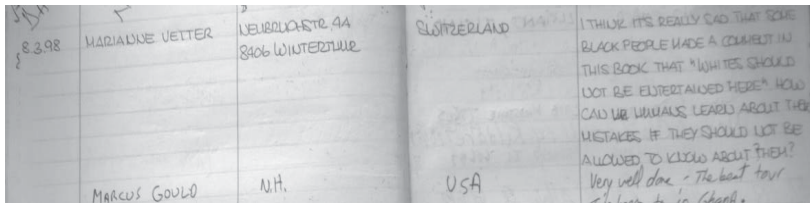 8.3.98 MARIANNE VETTER NEUBRUCHSTR. 44 SWITZERLAND I THINK IT'S REALLY SAD THAT SOME
8406 WINTERTHUR BLACK PEOPLE MADE A COMMENT IN
THIS BOOK THAT "WHITES SHOULD
NOT BE ENTERTAINED HERE". HOW
CAN WE HUMANS LEARN ABOUT THEIR
MISTAKES IF THEY SHOULD NOT BE
ALLOWED TO KNOW ABOUT THEM?
MARCUS GOULD N.H. USA Very well done - The best tour
in Ghana.